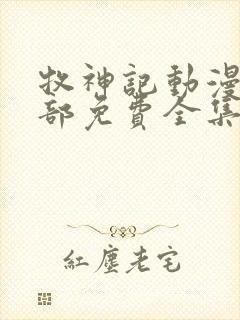 牧神記動漫
部免費全集
紅塵老宅